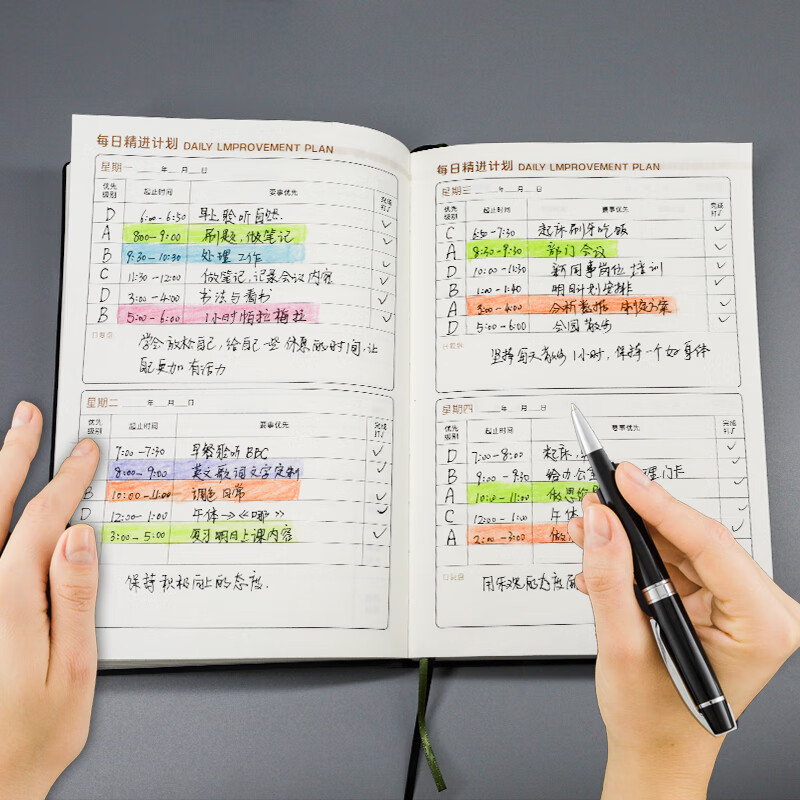 每日精进计划 DAILY LMPROVEMENT PLAN
星期一 年 月 日
优先级别 起止时间 要事优先 完成打了
D 6:00-6:50 早上聆听自然.
A 8:00-9:00 刷题,做笔记
B 9:30-10:30 处理工作
C 11:30-12:00 做笔记,记录会议内容
D 3:00-4:00 书法与看书
B 5:00-6:00 1小时帕拉梅拉
学会放松自己,给自己一些休息的时间,让
自己更加有活力
星期二 年 月 日
优先级别 起止时间 要事优先 完成打了
7:00-7:30 早餐聆听BBC
8:00-9:00 英文歌词文字定制
B 10:00-11:00 调色日常
D 12:00-1:00 午休→《哪》
3:00-5:00 复习明日上课内容
保持积极向上的态度.
每日精进计划 DAILY LMPROVEMENT PLAN
星期三 年 月 日
优先级别 起止时间 要事优先 完成打了
C 6:50-7:30 起床刷牙吃饭
A 8:30-9:30 部门会议
D 10:00-11:30 新同事岗位培训
B 1:00-1:40 明日计划安排
A 3:00-4:00 分析数据 方案
D 5:00-6:00 公园散步
坚持每天散步1小时,保持一个好身体
星期四 年 月 日
优先级别 起止时间 要事优先 完成打了
D 7:00-8:00 起床,
B 9:00-9:30 给办公室 理门卡
A 10:00-11:00 做思
C 12:00-1:00 午休
A 2:00-3:00 做
用乐观的态度